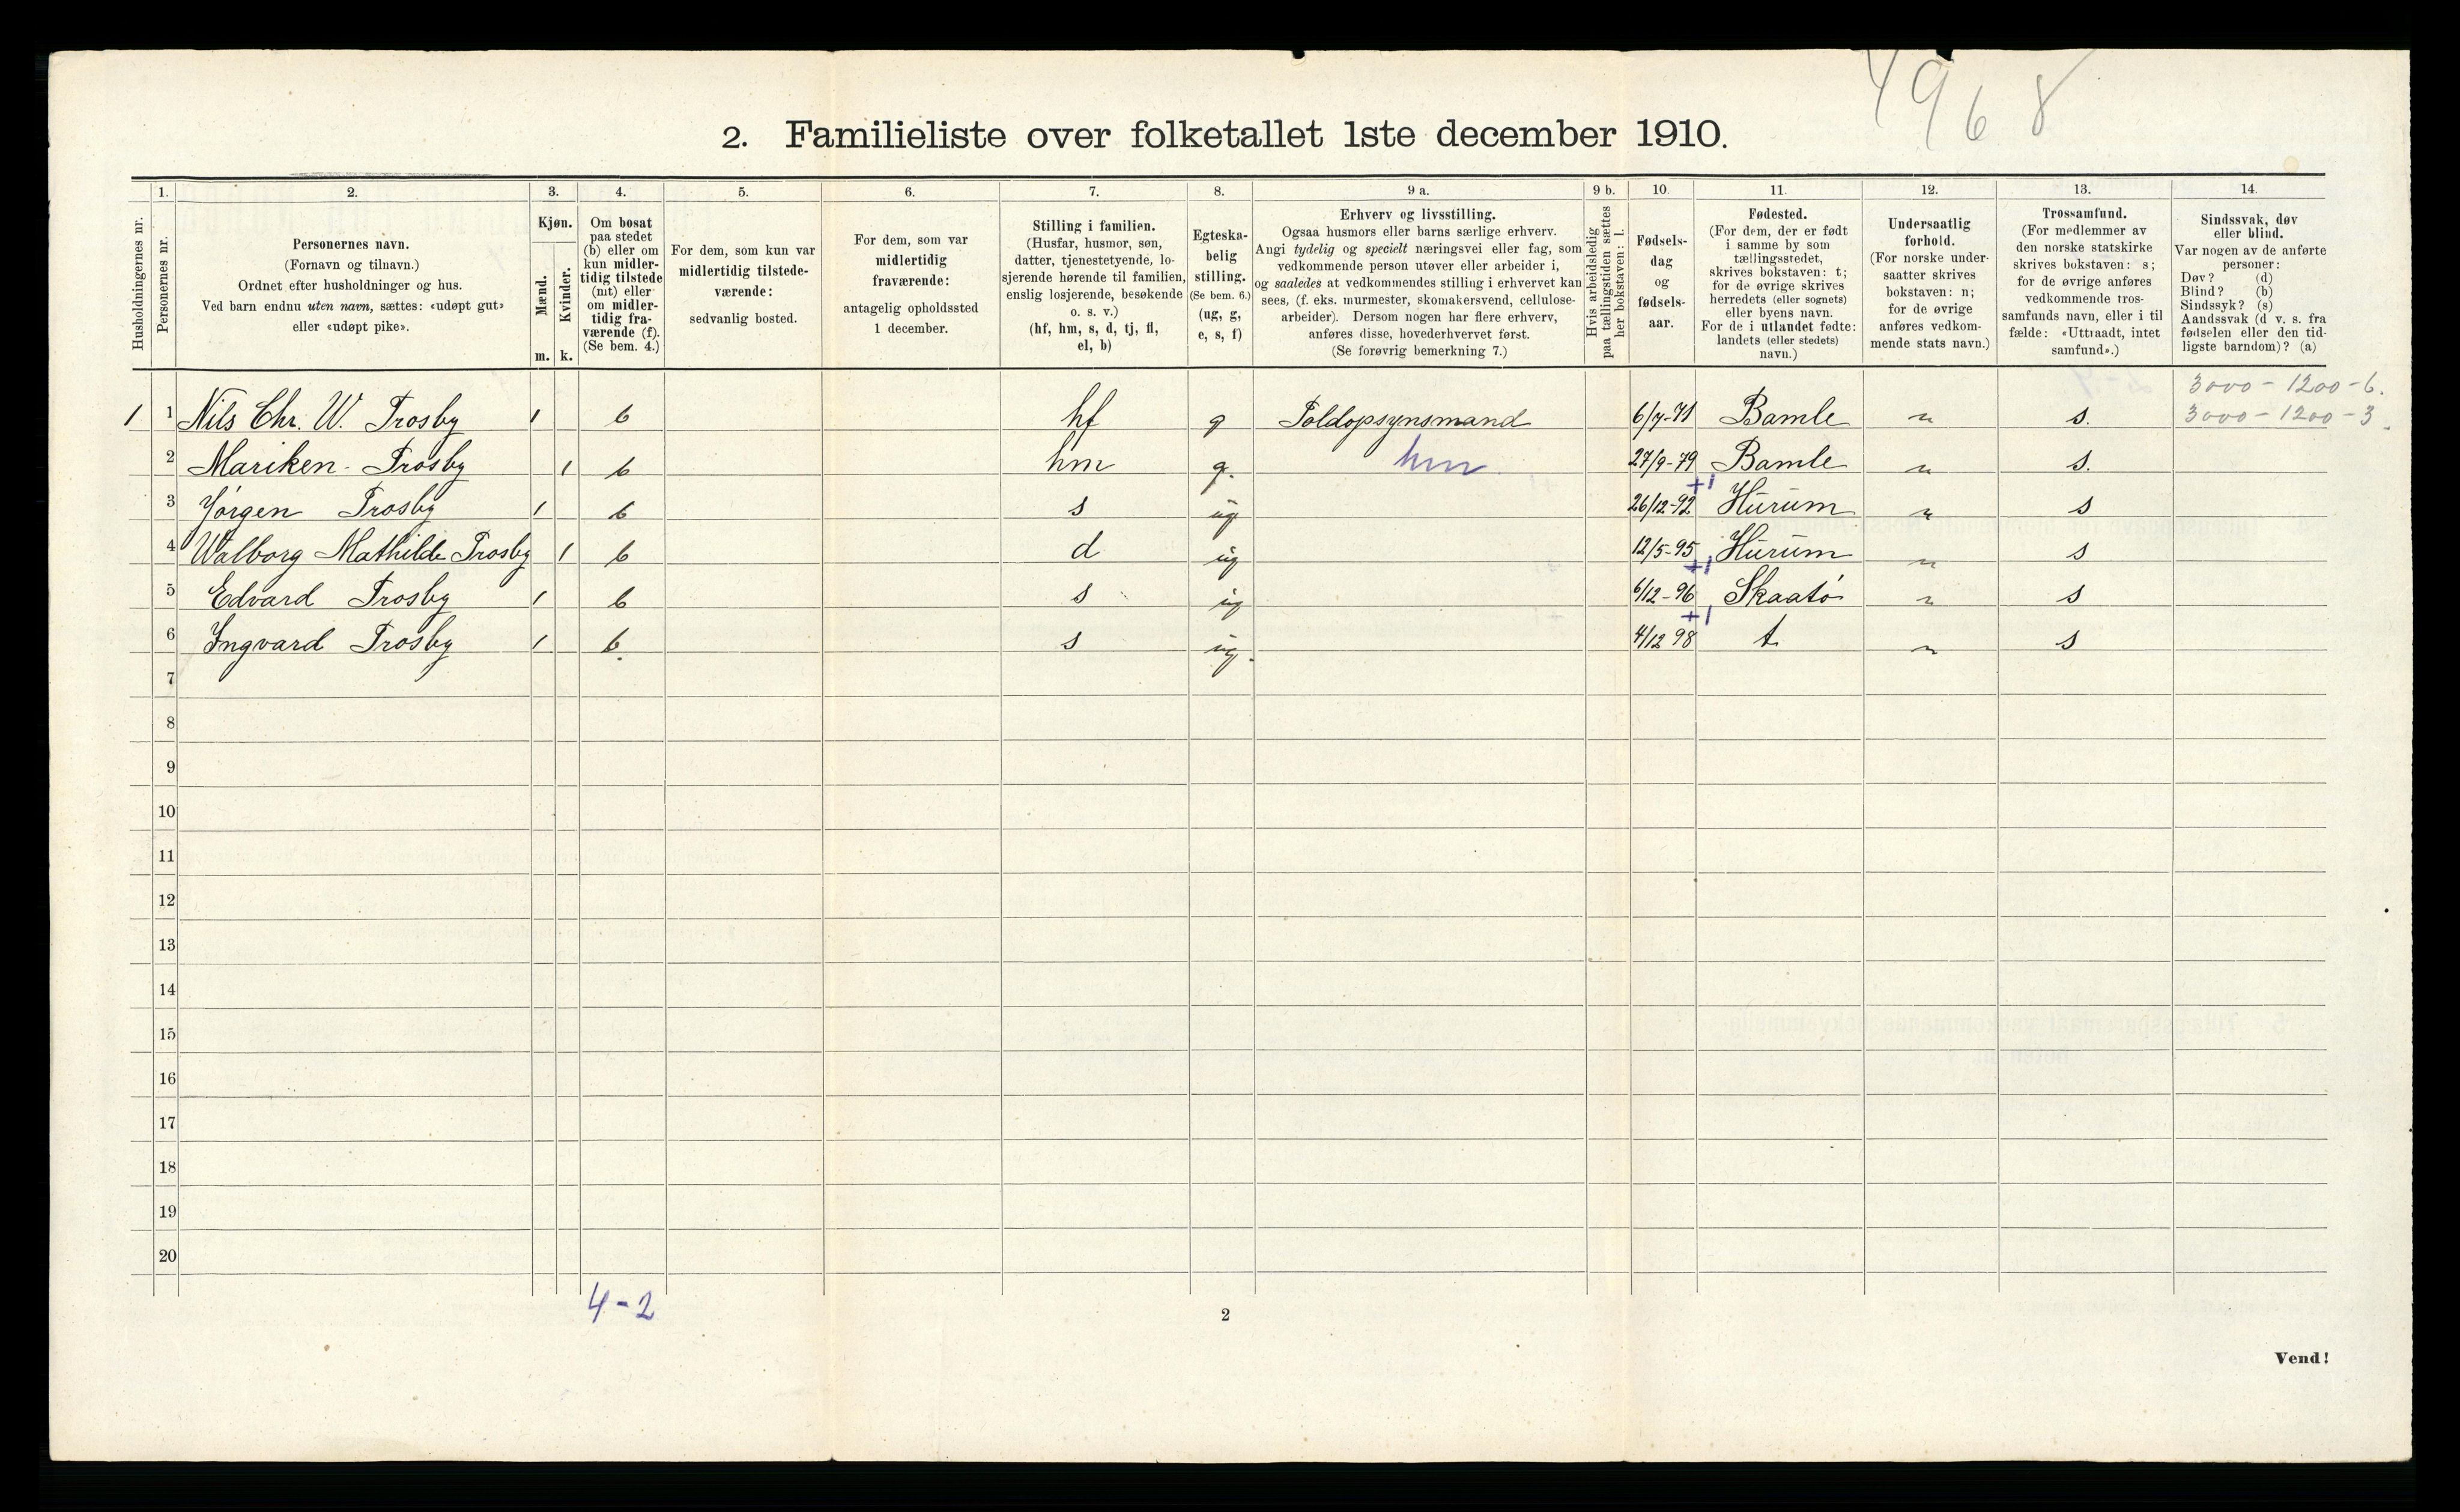 4968
2. Familieliste over folketallet 1ste december 1910.
1. 2. 3. 4. 5. 6. 7. 8. 9 a. 9 b. 10. 11. 12. 13. 14.
Husholdningernes nr.
Personernes nr.
Personernes navn.
(Fornavn og tilnavn.)
Ordnet efter husholdninger og hus.
Ved barn endnu uten navn, sættes: «udøpt gut»
eller «udøpt pike».
Kjøn.
Mænd.
Kvinder.
m. k.
Om bosat
paa stedet
(b) eller om
kun midler-
tidig tilstede
(mt) eller
om midler-
tidig fra-
værende (f).
(Se bem. 4.)
For dem, som kun var
midlertidig tilstede-
værende:
sedvanlig bosted.
For dem, som var
midlertidig
fraværende:
antagelig opholdssted
1 december.
Stilling i familien.
(Husfar, husmor, søn,
datter, tjenestetyende, lo-
sjerende hørende til familien,
enslig losjerende, besøkende
o. s. v.)
(hf, hm, s, d, tj, fl,
el, b)
Egteska-
belig
stilling.
(Se bem. 6.)
(ug, g,
e, s, f)
Erhverv og livsstilling.
Ogsaa husmors eller barns særlige erhverv.
Angi tydelig og specielt næringsvei eller fag, som
vedkommende person utøver eller arbeider i,
og saaledes at vedkommendes stilling i erhvervet kan
sees, (f. eks. murmester, skomakersvend, cellulose-
arbeider). Dersom nogen har flere erhverv,
anføres disse, hovederhvervet først.
(Se forøvrig bemerkning 7.)
Hvis arbeidsledig
paa tællingstiden sættes
her bokstaven: l.
Fødsels-
dag
og
fødsels-
aar.
Fødested.
(For dem, der er født
i samme by som
tællingsstedet,
skrives bokstaven: t;
for de øvrige skrives
herredets (eller sognets)
eller byens navn.
For de i utlandet fødte:
landets (eller stedets)
navn.)
Undersaatlig
forhold.
(For norske under-
saatter skrives
bokstaven: n;
for de øvrige
anføres vedkom-
mende stats navn.)
Trossamfund.
(For medlemmer av
den norske statskirke
skrives bokstaven: s;
for de øvrige anføres
vedkommende tros-
samfunds navn, eller i til
fælde: «Uttraadt, intet
samfund».)
Sindssvak, døv
eller blind.
Var nogen av de anførte
personer:
Døv? (d)
Blind? (b)
Sindssyk? (s)
Aandssvak (d v. s. fra
fødselen eller den tid-
ligste barndom)? (a)
3000 - 1200 - 6.
3000 - 1200 - 3.
1 1 Nils Chr. W. Trosby 1 b hf g Toldopsynsmand 6/7-71 Bamle n s.
2 Mariken Trosby 1 b hm g. hm 27/9-79 Bamle n s.
+1
3 Jørgen Trosby 1 b s ug 26/12-92 Hurum n s
4 Walborg Mathilde Trosby 1 b d ug 12/5-95 Hurum n s
+1
5 Edvard Trosby 1 b s ug 6/12-96 Skaatø n s
+1
6 Ingvard Trosby 1 b. s ug. 4/12 98 t n s
7
8
9
10
11
12
13
14
15
16
17
18
19
20
4-2
2
Vend!